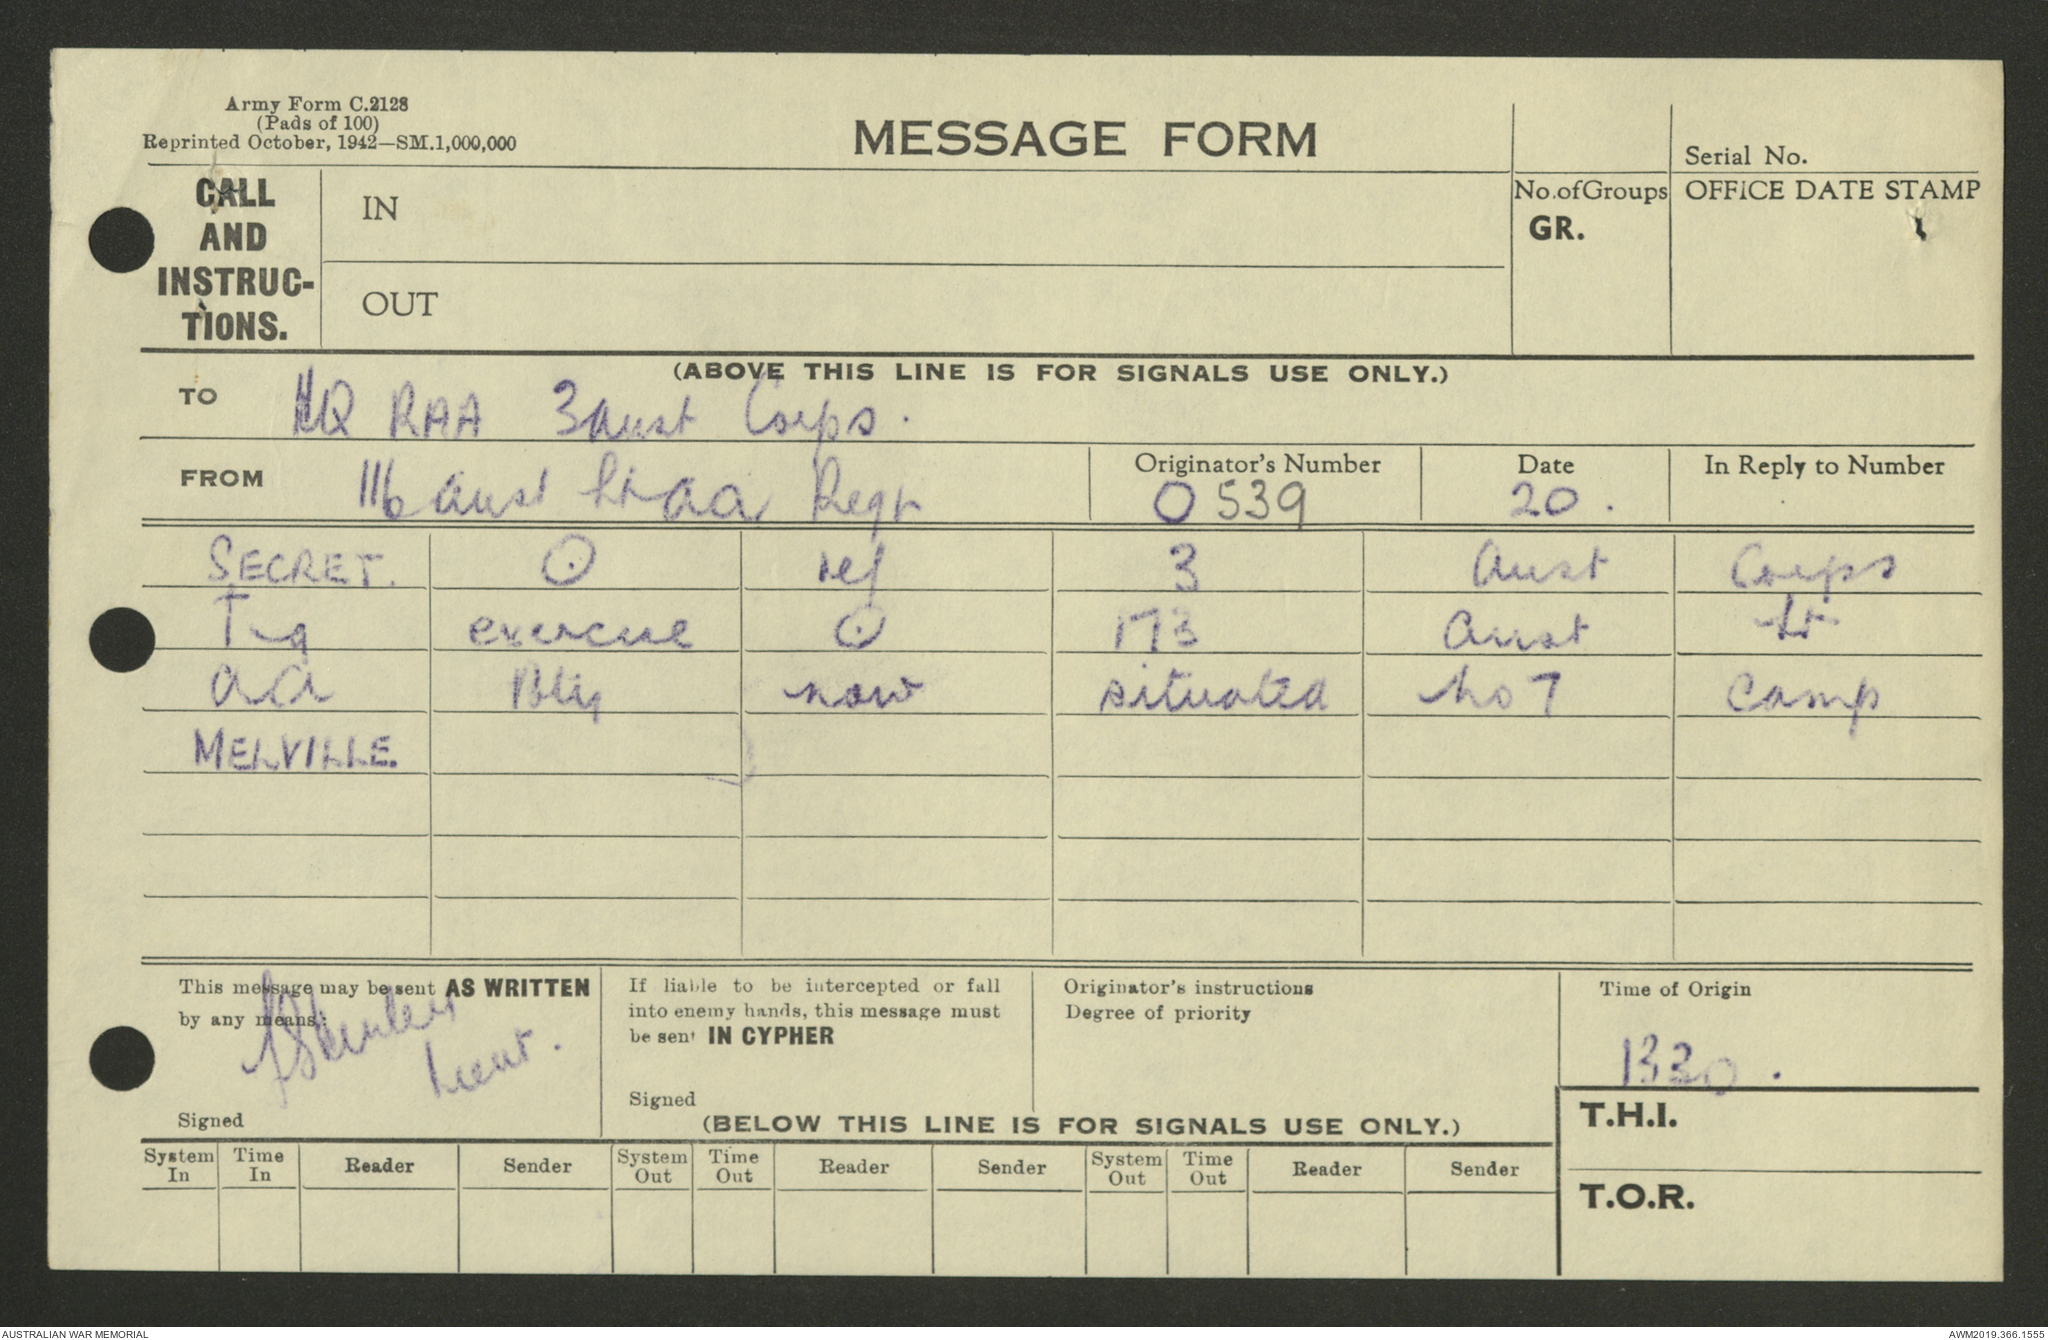 Army Form C.2128
(Pads of 100)
Reprinted October, 1942—SM.1,000,000
MESSAGE FORM
Serial No.
CALL AND INSTRUC-TIONS.
IN
OUT
No. of Groups
GR.
OFFICE DATE STAMP
(ABOVE THIS LINE IS FOR SIGNALS USE ONLY.)
TO HQ RAA 3 Aust Corps.
FROM 116 Aust Lt AA Regt
Originator's Number O 539
Date 20.
In Reply to Number
SECRET. ⊙ ref 3 Aust Corps
Trg exercise ⊙ 173 Aust Lt
AA Bty now situated No 7 Camp
MELVILLE.
This message may be sent AS WRITTEN
by any means.
Lieut.
Signed
If liable to be intercepted or fall
into enemy hands, this message must
be sent IN CYPHER
Signed
Originator's instructions
Degree of priority
Time of Origin
1330.
(BELOW THIS LINE IS FOR SIGNALS USE ONLY.)
T.H.I.
T.O.R.
System In Time In Reader Sender System Out Time Out Reader Sender System Out Time Out Reader Sender
AUSTRALIAN WAR MEMORIAL AWM2019.366.1555